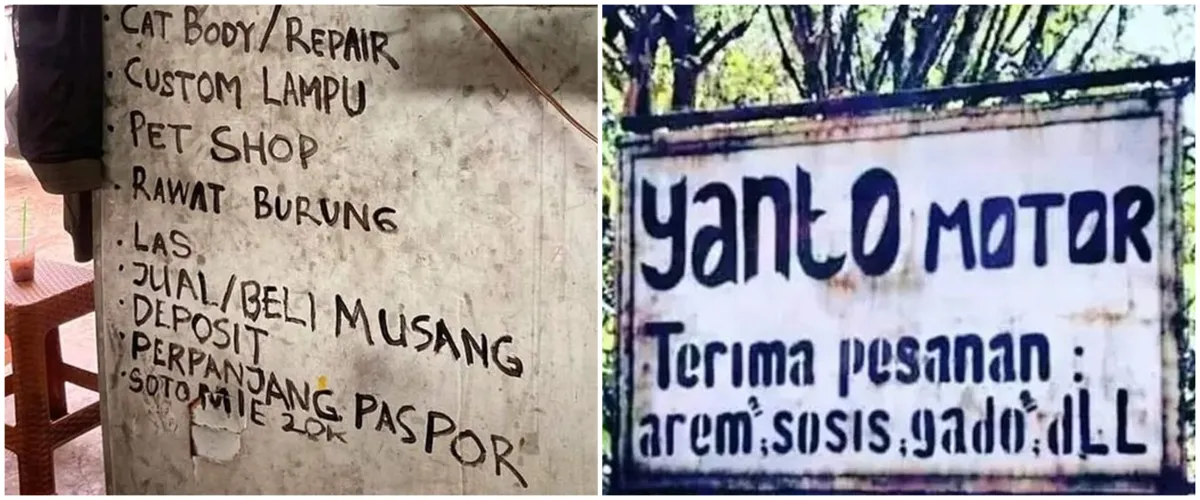 · CAT BODY/REPAIR
· CUSTOM LAMPU
· PET SHOP
· RAWAT BURUNG
· LAS
· JUAL/BELI MUSANG
· DEPOSIT
· PERPANJANG PASPOR
· SOTO MIE 20K
yanto MOTOR
Terima pesanan :
arem²,sosis,gado²,dLL